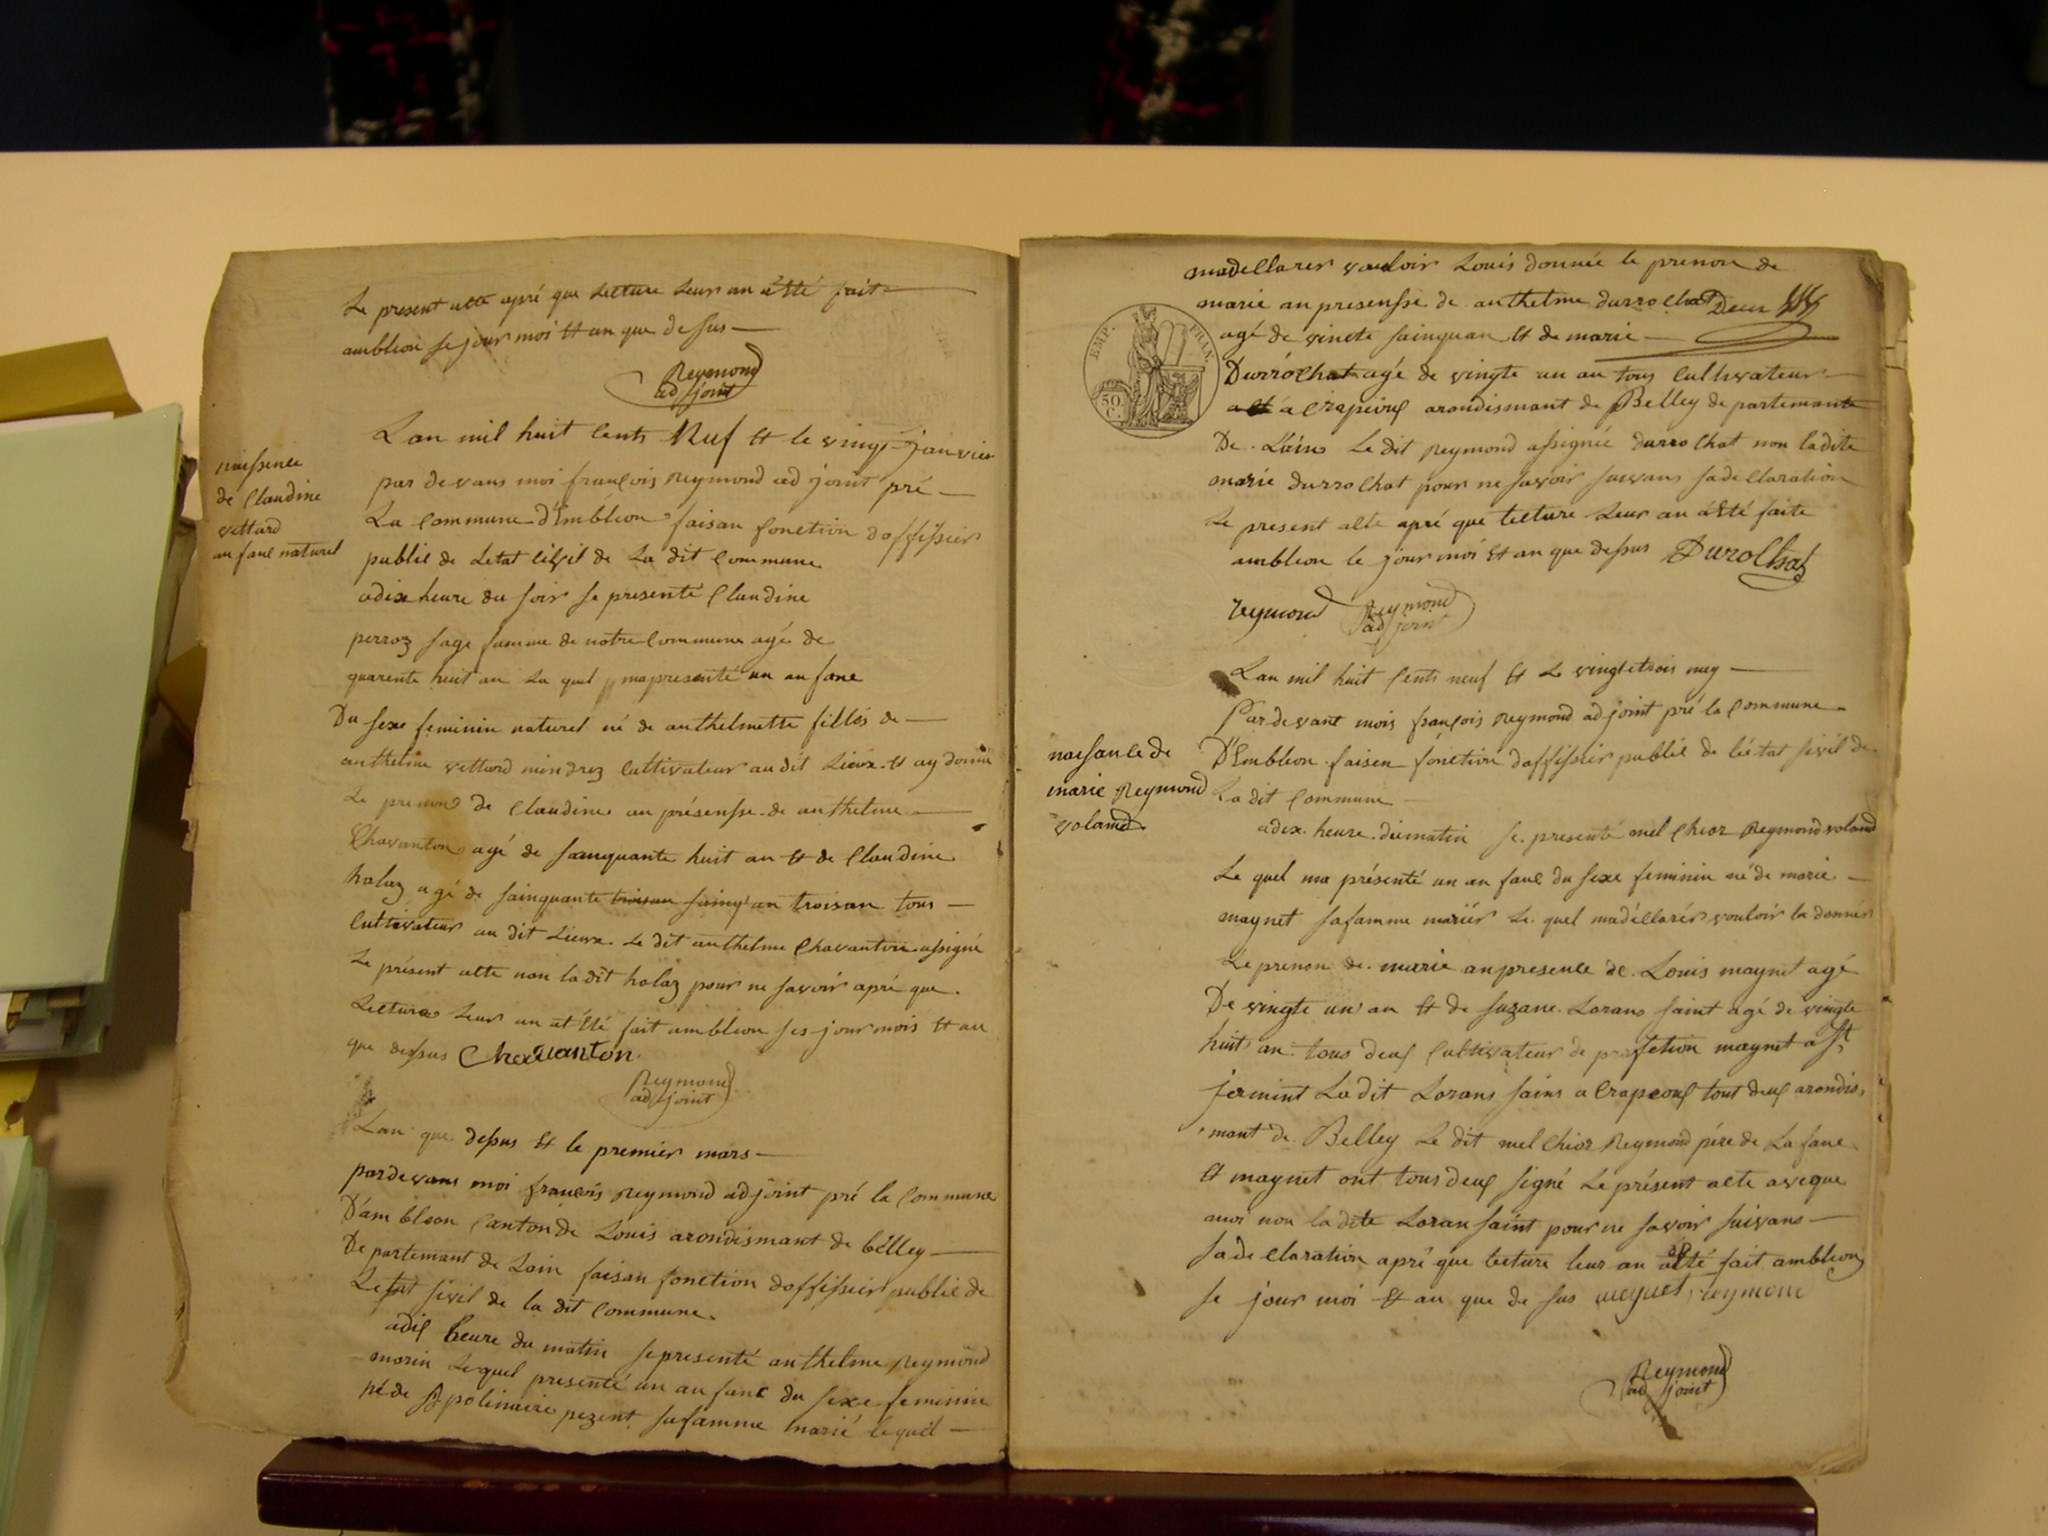 Le present acte apré que lecture leur an a été fait
ambleon se jour moi et an que desus
Reymond
adjoint
naissence
de Claudine
vettard
anfant naturel
L an mil huit cents Nuf et le vingt janvier
par devans moi françois Reymond adjoint pré
La commune d'Embléon faisan fonction doffissier
publie de Letat civil de La dit commune
adix heure du soir se presenté Claudine
perroz sage famme de notre commune agé de
quarente huit an La quel ma presenté un anfanc
Du sexe feminin naturel né de anthelmette filles de
anthelme vettard mindrez cultivateur au dit Lieux et ay donné
Le prenon de Claudine an présensse de anthelme
Chavanton agé de sainquante huit an et de Claudine
holaz agé de sainquante troisan tous
cultivateur au dit Lieux Le dit anthelme Chavanton assigné
Le présent acte non ladit holaz pour ne savoir apré que
Lecture Leur an a été fait ambléon ses jour mois et an
que dessus Chavanton
Reymond
adjoint
Lan que dessus et le premier mars
pardevans moi françois Reymond adjoint pré la commune
D'ambleon Canton de Louis arondismant de bélley
De partemant de Loin faisan fonction doffissier publie de
Letat sivil de la dit commune
adix heure du matin se presenté anthelme Reymond
morin Lequel presenté un anfanc du sexe feminin
né de Appolinaire pezent safamme marié lequel
EMP. FRAN.
50
C.
madecllarer vouloir Louis donnée le prenon de
marie an presensse de anthelme durrochat Deux
agé de vincte sainquan et de marie
Durrochat agé de vingte un an tous cultivateur
a crapeiux arondismant de Belley departemante
De Loins Le dit Reymond assignée durrochat non ladite
marie durrochat pour ne savoir suivans sade claration
Le present acte apré que lecture Leur an a été faite
ambleon le jour moi et an que dessus Durochat
reymond Reymond
adjoint
Lan mil huit cents neuf et Le vingtetrois mey
naissance de
marie Reymond
voland
Par devant mois françois Reymond adjoint pré la commune
D'Embleon faisen fonction doffissier publie de létat sivil de
La dit commune
adix heure du matin se presenté melchior Reymond voland
Le quel ma présenté un anfanc du sexe feminin né de marie
maynet safamme mariér Le quel madécllarér vouloir la donnér
Le prenon de marie anpresence de Louis maynet agé
De vingte un an et de suzane Lorans saint agé de vingte
huit an tous deux cultivateur de profetion maynet a St
jermint Ladit Lorans sains a Crapeoux tout deux arondis
mant de Belley Le dit melchior Reymond pére de Lafanc
et maynet ont tous deux signé Le présent acte aveque
moi non la dite Loran saint pour ne savoir suivans
sade claration apré que lecture leur an a été fait ambleon
se jour moi et an que de sus meynet reymond
Reymond
adjoint